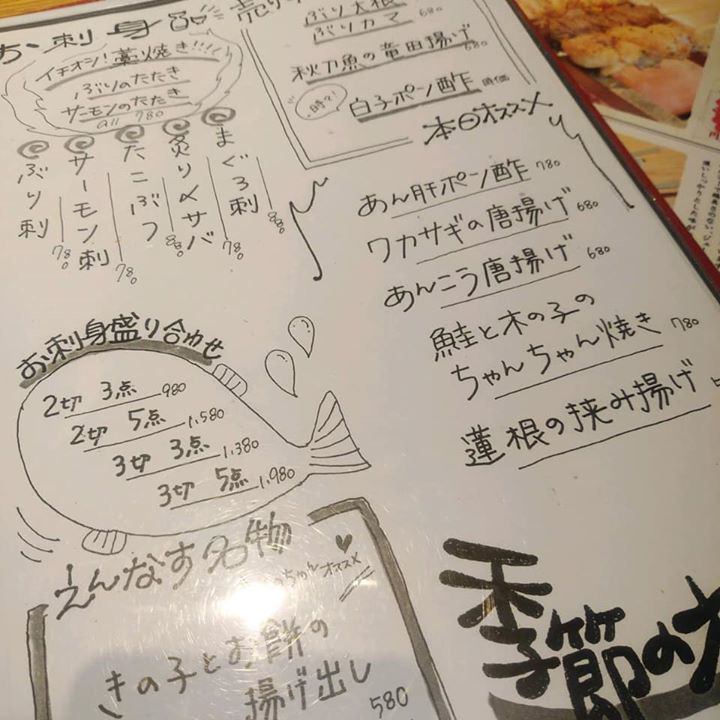 お刺身品
イチオシ！藁焼き！！！
ぶりのたたき
サーモンのたたき
all 780
まぐろ刺 880
炙り〆サバ 780
たこぶつ 880
サーモン刺 780
ぶり刺 780
ぶり大根
ぶりカマ 680
秋刀魚の竜田揚げ 680
白子ポン酢 時価
本日オススメ
あん肝ポン酢 780
ワカサギの唐揚げ 680
あんこう唐揚げ 680
鮭と木の子の
ちゃんちゃん焼き 780
蓮根の挟み揚げ
お刺身盛り合わせ
2切 3点 980
2切 5点 1,580
3切 3点 1,380
3切 5点 1,980
えんなす名物
ちゃんオススメ
きの子とお餅の
揚げ出し
580
季節の